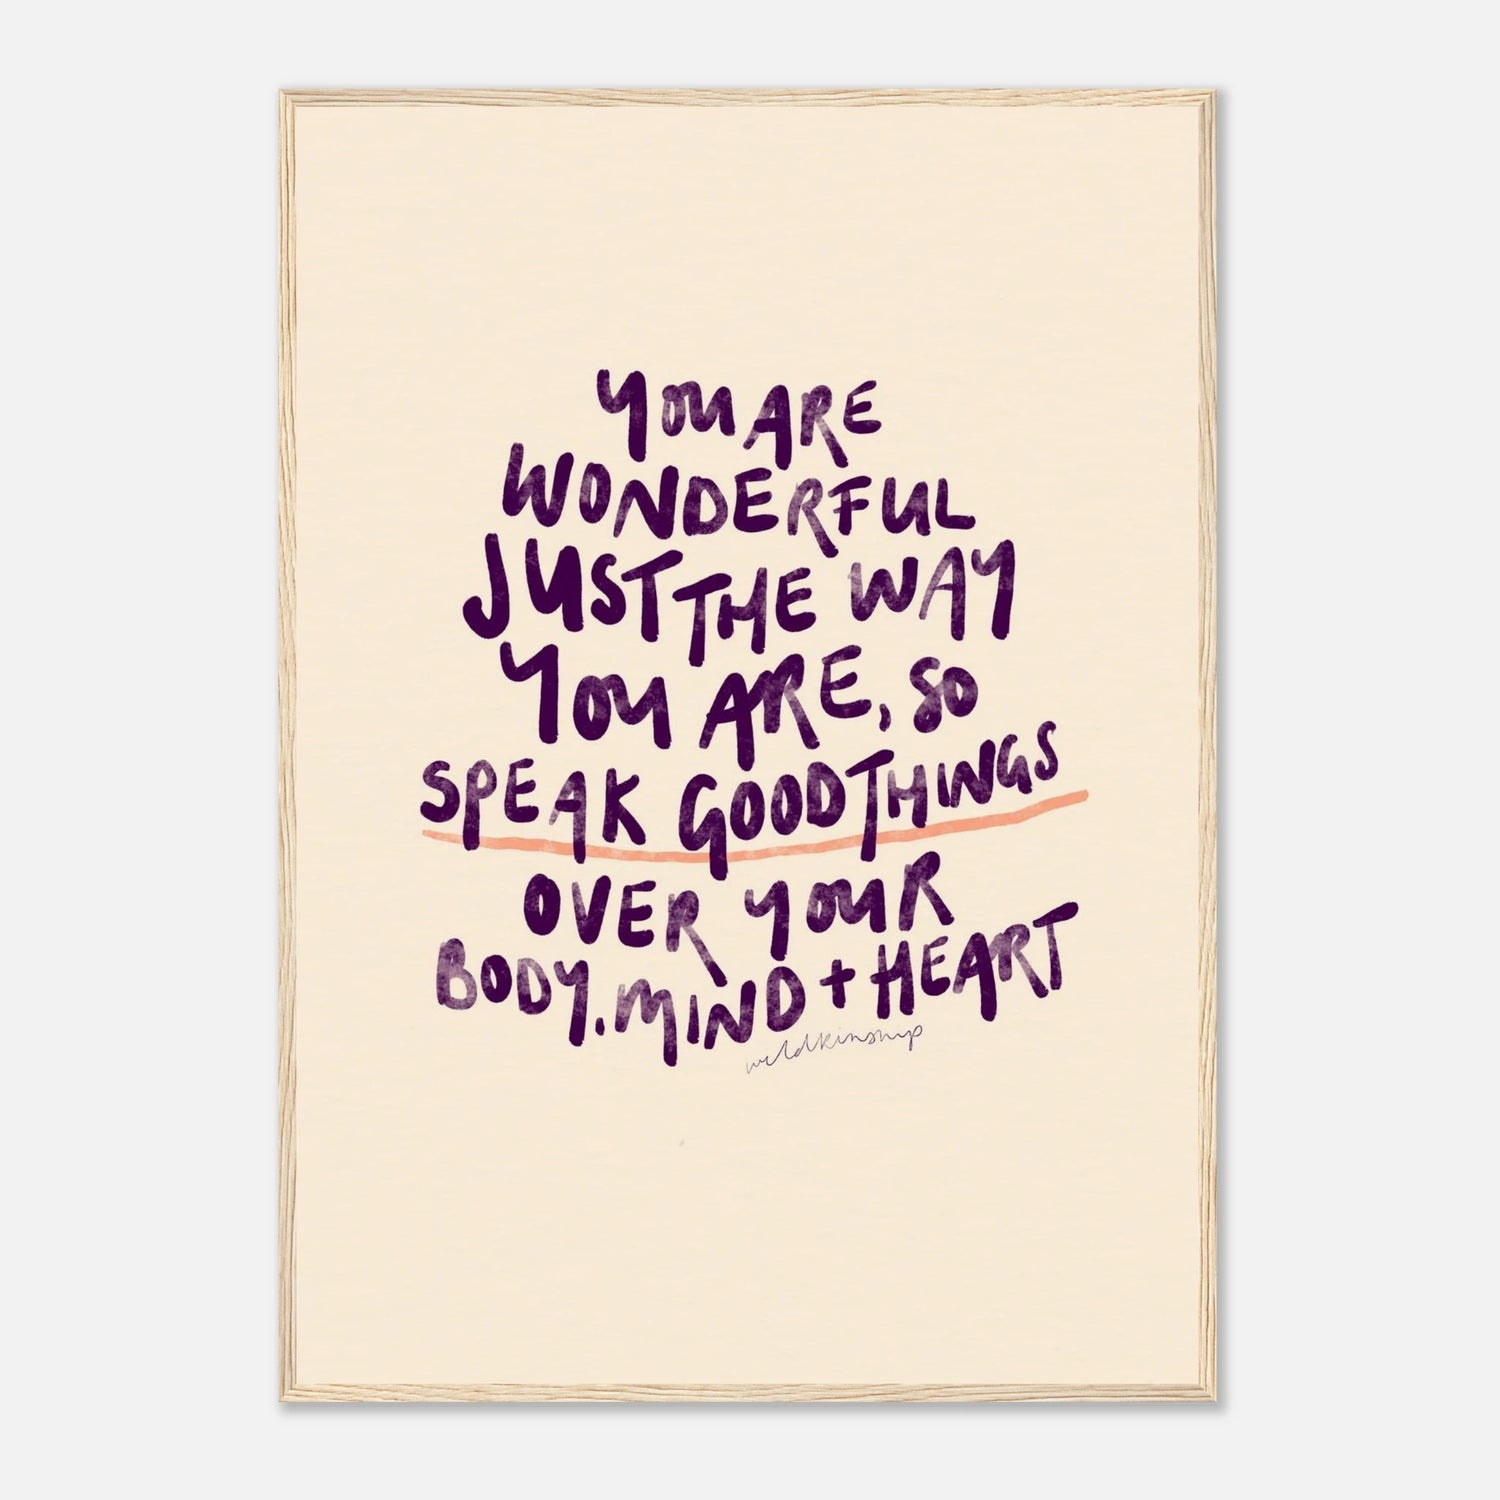 YOU ARE
WONDERFUL
JUST THE WAY
YOU ARE, SO
SPEAK GOOD THINGS
OVER YOUR
BODY, MIND + HEART
wildkinship